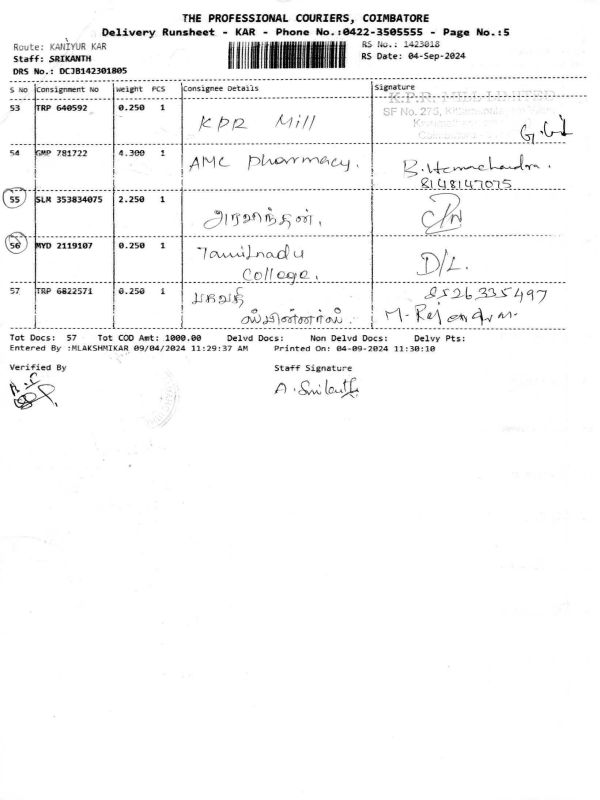 THE PROFESSIONAL COURIERS, COIMBATORE
Delivery Runsheet - KAR - Phone No.:0422-3505555 - Page No.:5
Route: KANIYUR KAR RS No.: 1423018
Staff: SRIKANTH RS Date: 04-Sep-2024
DRS No.: DCJB142301805
S No Consignment No Weight PCS Consignee Details Signature
53 TRP 640592 0.250 1 KPR Mill K.P.R. MILL LIMITED
SF No. 275,
54 GMP 781722 4.300 1 AMC Pharmacy. B. Hemachandra.
8148147075
55 SLM 353834075 2.250 1 அரவிந்தன்.
56 MYD 2119107 0.250 1 Tamilnadu
College. D/L.
57 TRP 6822571 0.250 1 பகவதி 8526335497
ஸ்பின்னர்ஸ். M. Rajendran.
Tot Docs: 57 Tot COD Amt: 1000.00 Delvd Docs: Non Delvd Docs: Delvy Pts:
Entered By :MLAKSHMIKAR 09/04/2024 11:29:37 AM Printed On: 04-09-2024 11:30:10
Verified By Staff Signature
A. Srikanth